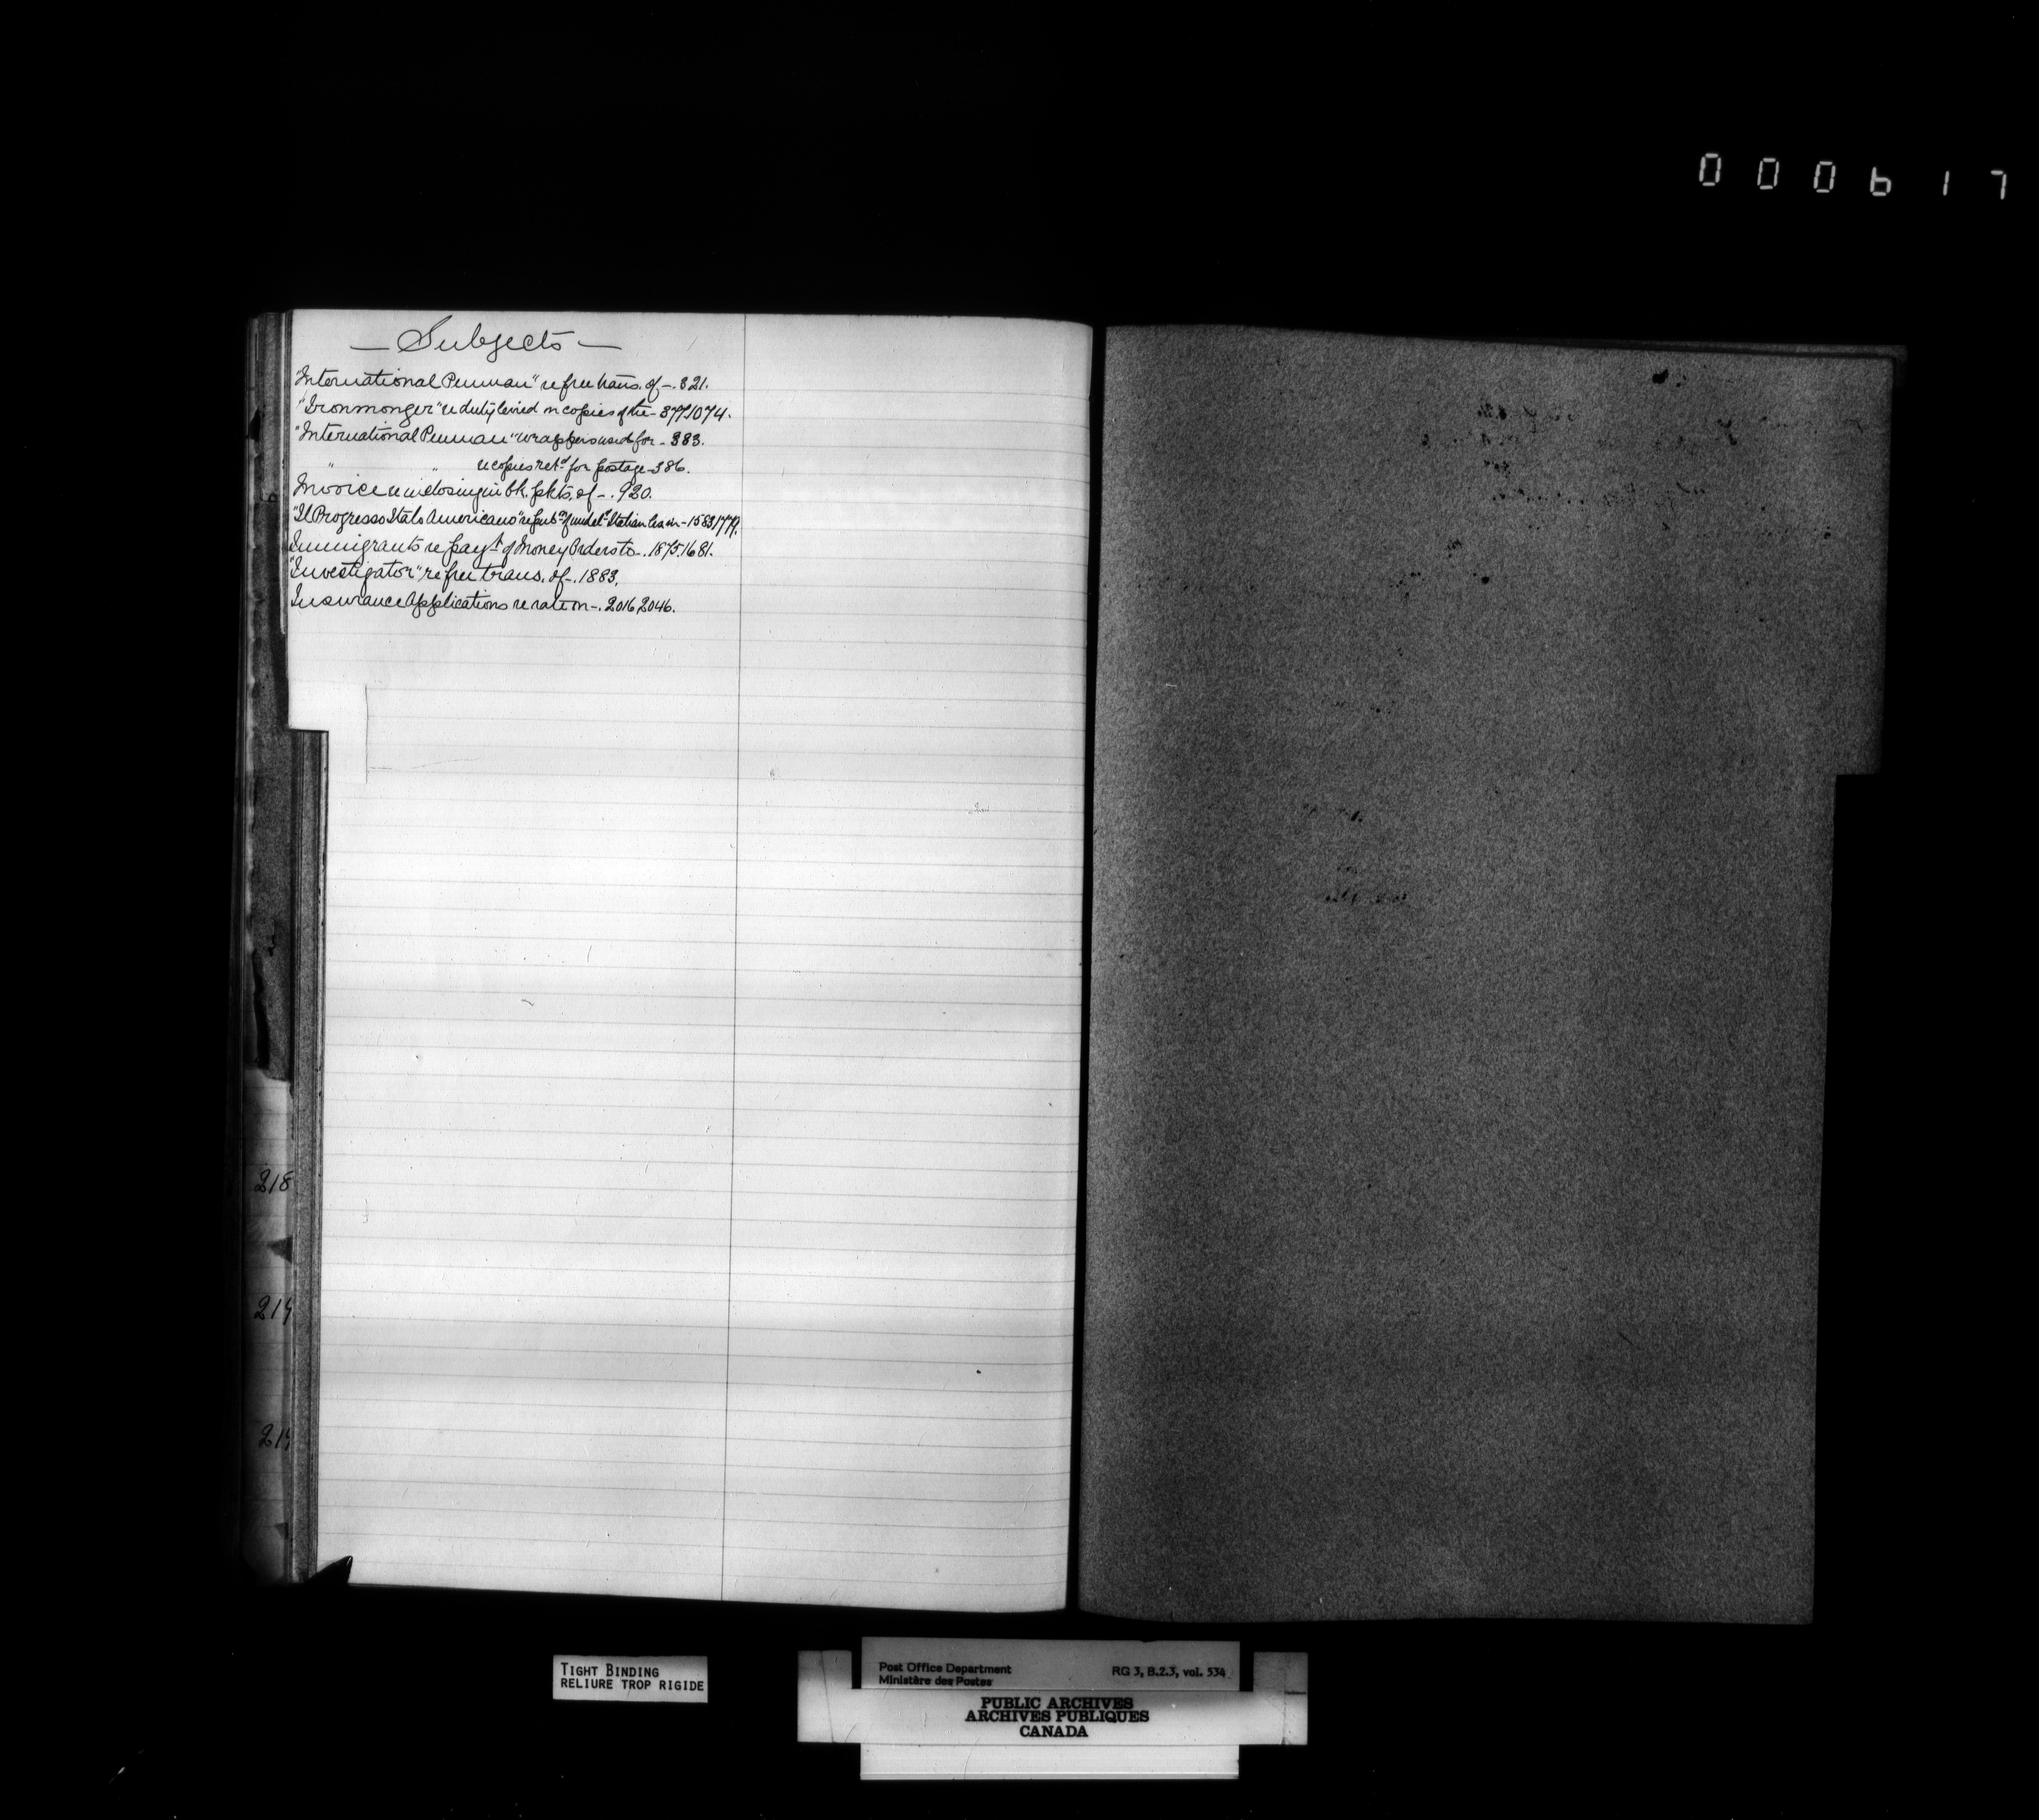 000617
— Subjects —
"International Penman" re free trans. of —. 321.
"Ironmonger" re duty levied on copies of the — 877.1074.
"International Penman" wrappers used for — 383.
" " re copies retd for postage — 386.
Invoice re inclosing in bk. pkts. of —. 920.
"Il Progresso Italo Americano" re of Italian in — 1583 1779.
Immigrants re payt of Money Orders to —. 1875.1681.
"Investigator" re free trans. of —. 1883.
Insurance Applications re rate on —. 2016 2046.
218
219
219
TIGHT BINDING
RELIURE TROP RIGIDE
Post Office Department RG 3, B.2.3, vol. 534
Ministère des Postes
PUBLIC ARCHIVES
ARCHIVES PUBLIQUES
CANADA